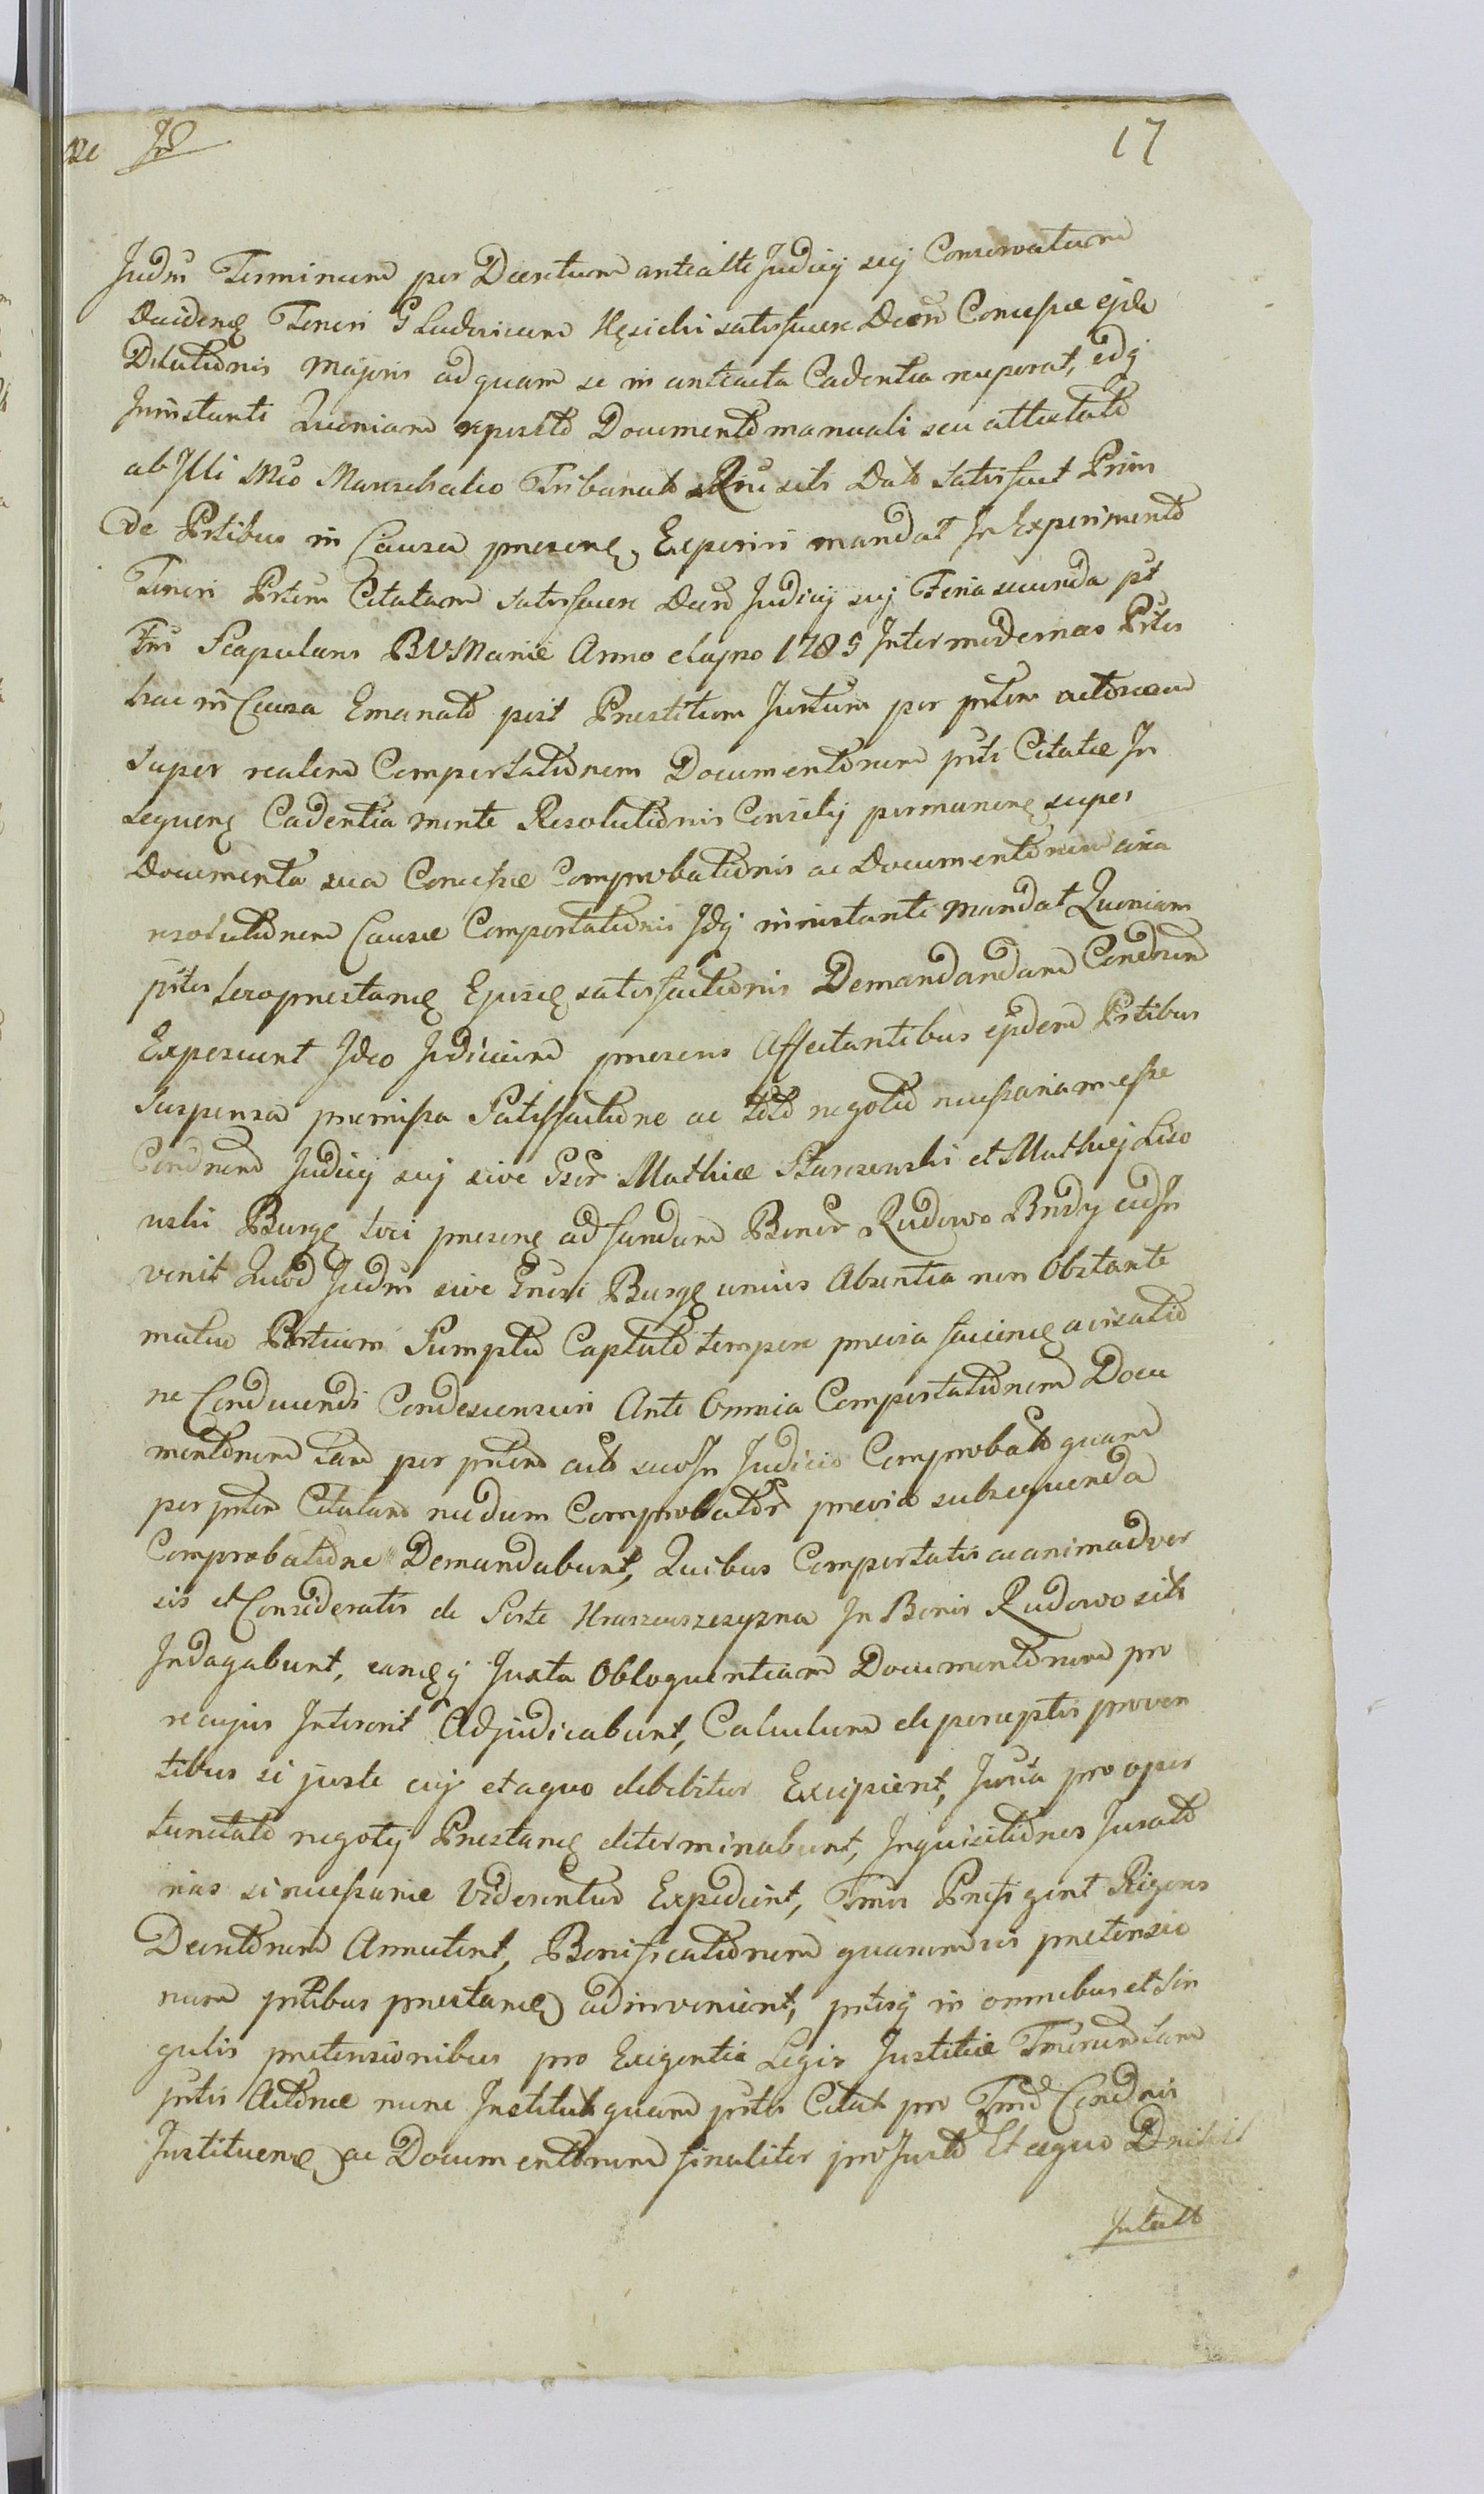 17
Judm Terminum per Decretum anteacti Judicij sui Conservatum
Decidene Teneri G Ludovicum Kęsicki satisfacere Decr Concessae ejde
Dilationis Majoris ad quam se in anteacta Cadentia reuperat, idq
Juinstanti Quoniam reposito Documento manuali seu attestato
ab Illi Mco Marschalco Tribunat Dato satisfact Prius
de Prtibus in Causa presene, Experiri mandat In Experimento
Teneri Prtem Citatam satisfacere Decro Judicij sui Feria secunda pt
Fm Scapularis BVMariæ Anno elapso 1785 Inter modernas Prtes
hac in Causa Emanato post Prestitum Juctum per prtem actoream
super realem Comportationem Documentorum prti Citatæ In
sequene Cadentia mente Resolutionis Consilij permanene super
Documenta sua Concessæ Comprobationis ac Documentorum circa
resolutionem Causæ Comportationis Idq ininstanti Mandat Quoniam
prtes loco prestanæ Ejuscæ satisfactionis Demandandam Condnem
Exposcunt Ideo Judicium presens Affectantibus ejsdem Prtibus
Suspensa premissa Satisfactione ac toto negotio necessariam esse
Condnem Judicij sui sive Gser Mathiæ Starczewski et Mathiej Liso
wski Burgæ loci presene ad fundum Bonor Rudowo Brody adin
venit Quod Judm sive Gnrosi Burgæ unius Absentia non Obstante
mutuo Prtium Sumptu Captato tempore previa faciene avisatio
ne Conducendi Condescensuri Ante Omnia Comportationem Docu
mentorum tam per prtem acto suo In Judicio Comprobato quam
per prtem Citatam nudum Comprobator previa subsequenda
Comprobatione Demandabunt, Quibus Comportatis ac animadver
sis et Consideratis de Sorte Kraszewszczyzna In Bonis Rudowo sitt
Indagabunt, eancæq Juxta Obloquentiam Documentorum pro
re cujus Intererit Adjudicabunt, Calculum de perceptis proven
tibus si juste cuj et a quo debebitur Excipient, Jurta pro oppor
tunitate negotij Prestanæ determinabunt, Inquisitiones Jurato
rias si necessariæ Viderentur Expedient, Tmos Prefigent Rigores
Decretorum Annectent, Bonificationem quarumvis pretensio
num prtibus prestanæ adinvenient, prtesq in omnibus et Sin
gulis pretensionibus pro Exigentia Legis Justitiæ Tmrum tam
prtis Actoreæ nunc Institut quam prtis Citat pro Tmo Condnis
Instituene ac Documentorum finaliter pro Justo Et æquo